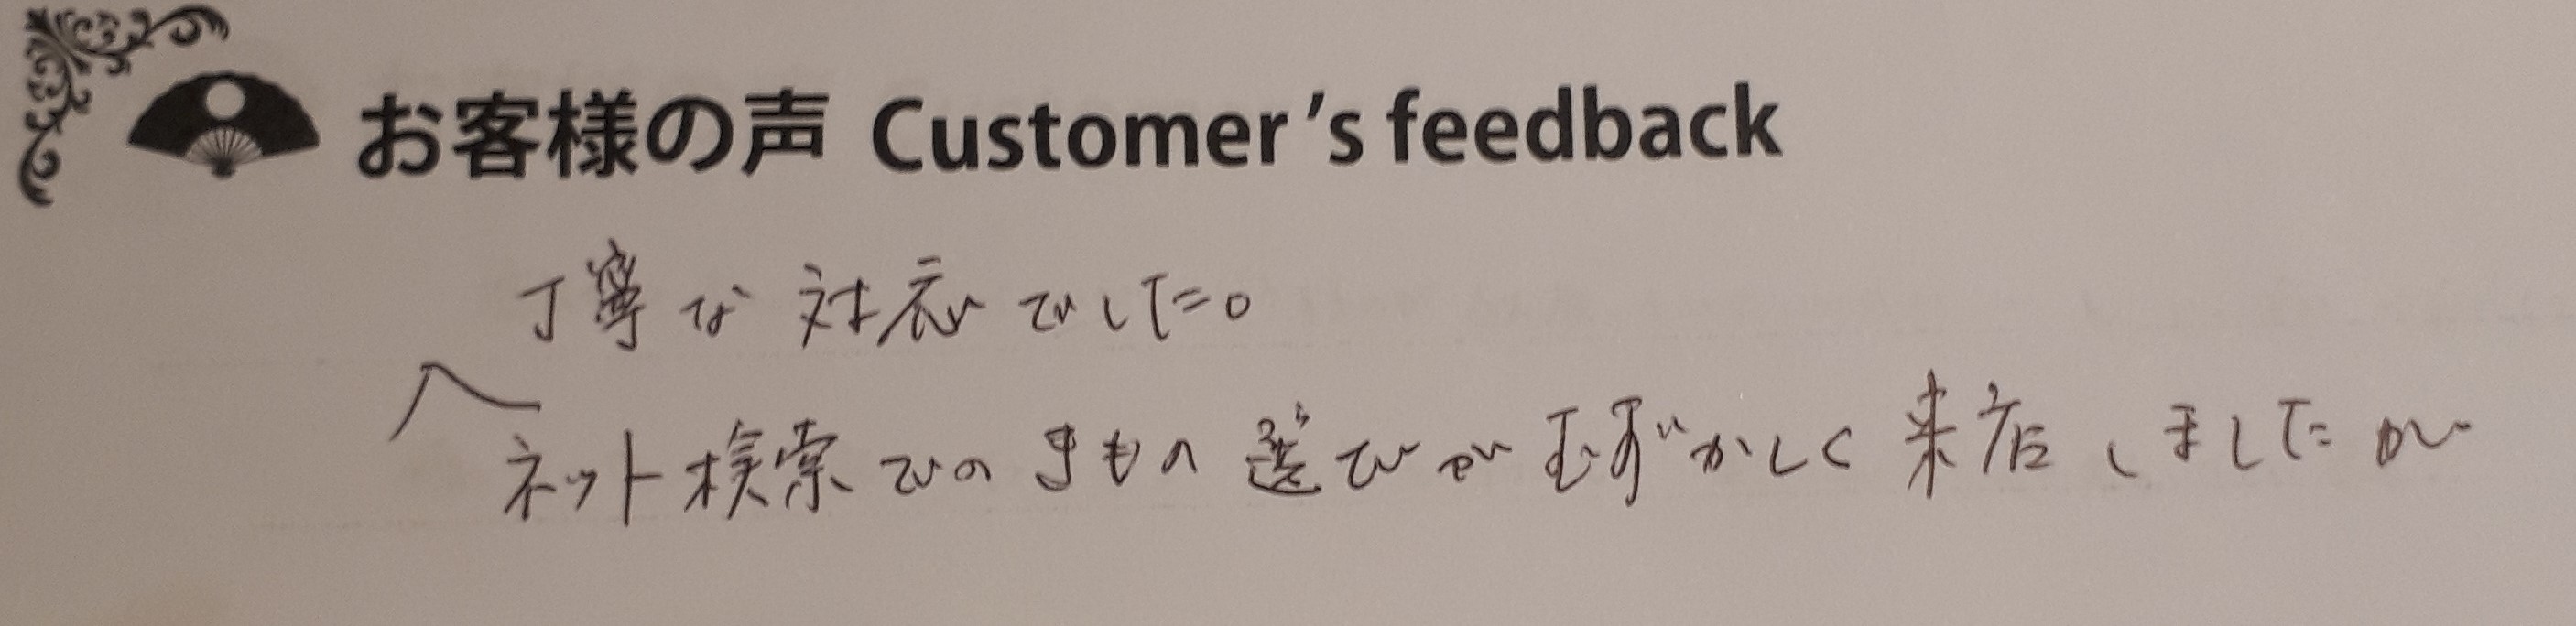 お客様の声 Customer's feedback
丁寧な対応でした。
ネット検索でのきもの選びがむずかしく来店しましたが